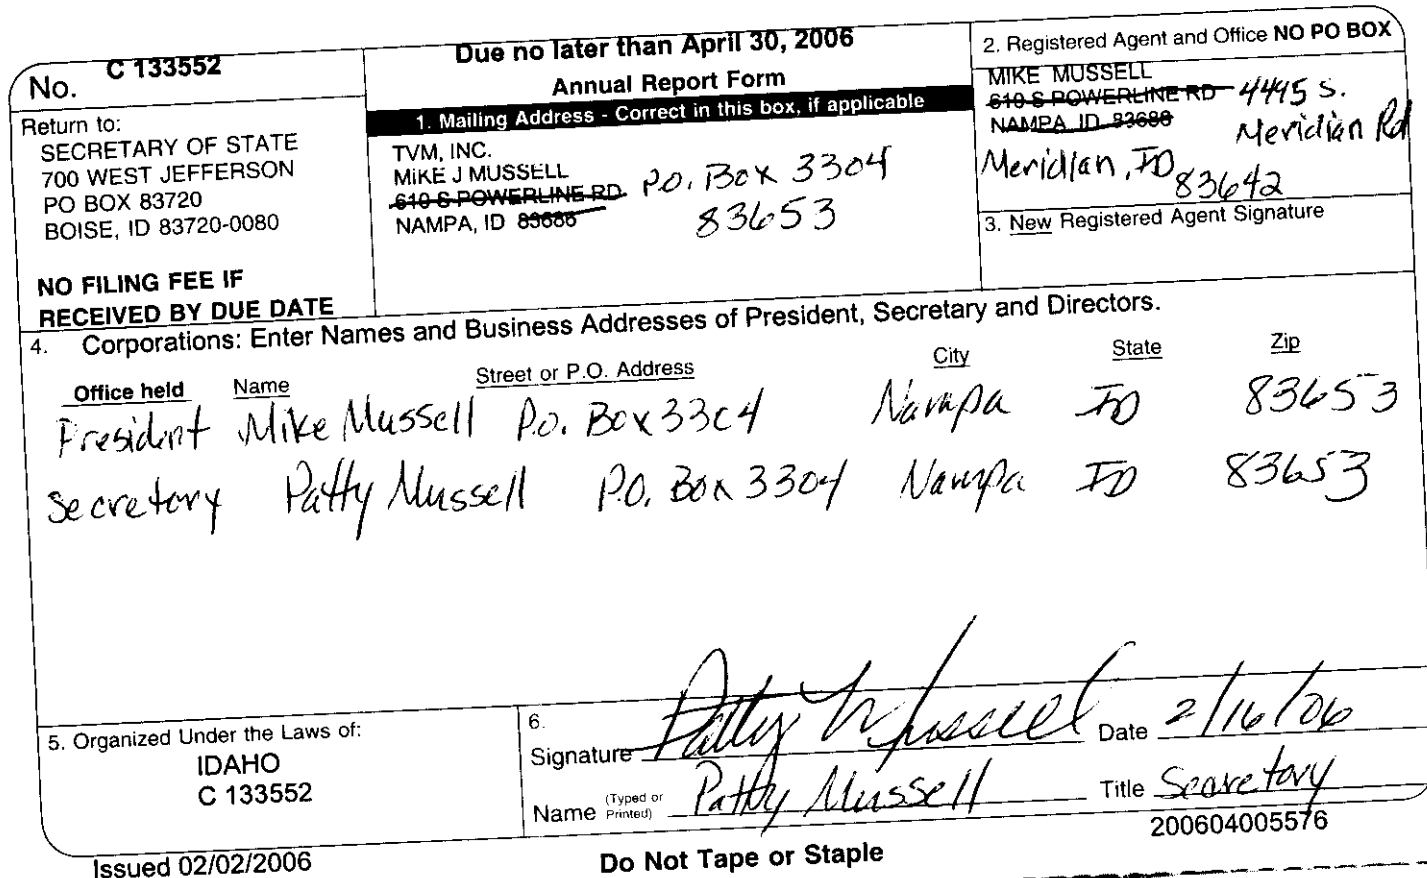 No. C 133552
Return to:
SECRETARY OF STATE
700 WEST JEFFERSON
PO BOX 83720
BOISE, ID 83720-0080
NO FILING FEE IF
RECEIVED BY DUE DATE
Due no later than April 30, 2006
Annual Report Form
1. Mailing Address - Correct in this box, if applicable
TVM, INC.
MIKE J MUSSELL
610 S POWERLINE RD P.O. Box 3304
NAMPA, ID 83686 83653
2. Registered Agent and Office NO PO BOX
MIKE MUSSELL
610 S POWERLINE RD 4495 S.
NAMPA ID 83686 Meridian Rd
Meridian, ID 83642
3. New Registered Agent Signature
4. Corporations: Enter Names and Business Addresses of President, Secretary and Directors.
Office held Name Street or P.O. Address City State Zip
President Mike Mussell P.O. Box 3304 Nampa ID 83653
Secretory Patty Mussell P.O. Box 3304 Nampa ID 83653
5. Organized Under the Laws of:
IDAHO
C 133552
6.
Signature Patty M Mussell Date 2/16/06
Name (Typed or Printed) Patty Mussell Title Secretory
200604005576
Issued 02/02/2006 Do Not Tape or Staple